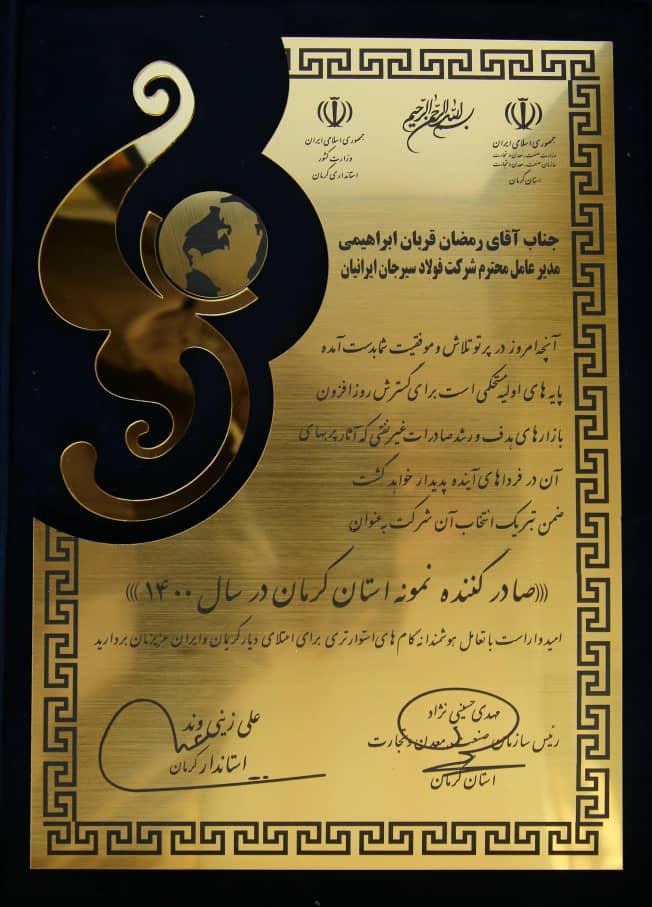 بسم الله الرحمن الرحیم
جمهوری اسلامی ایران
وزارت صنعت، معدن و تجارت
سازمان صنعت، معدن و تجارت
استان کرمان
جمهوری اسلامی ایران
وزارت کشور
استانداری کرمان
جناب آقای رمضان قربان ابراهیمی
مدیر عامل محترم شرکت فولاد سیرجان ایرانیان
آنچه امروز در پرتو تلاش و موفقیت شما بدست آمده
پایه های اولیه مستحکمی است برای گسترش روز افزون
بازارهای هدف و رشد صادرات غیر نفتی که آثار پربهای
آن در فرداهای آینده پدیدار خواهد گشت
ضمن تبریک انتخاب آن شرکت به عنوان
(((صادر کننده نمونه استان کرمان در سال ۱۴۰۰)))
امیدوار است با تعامل هوشمندانه گام های استوارتری برای اعتلای دیار کریمان و ایران عزیزمان بردارید
مهدی حسینی نژاد
رئیس سازمان صنعت، معدن و تجارت
استان کرمان
علی زینی وند
استاندار کرمان